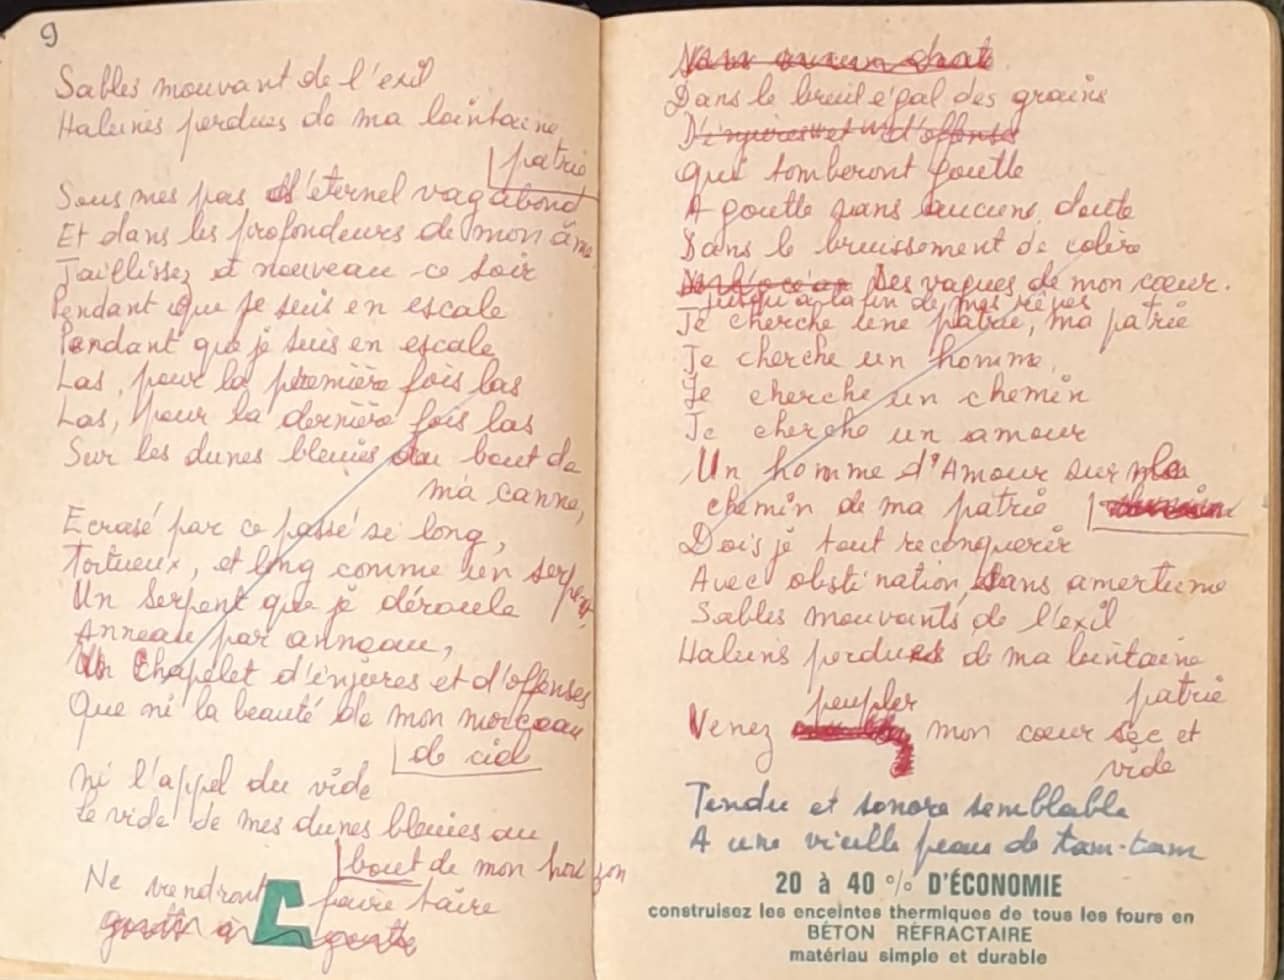 9
Sables mouvant de l'exil
Haleines perdues de ma lointaine
patrie
Sous mes pas d'éternel vagabond
Et dans les profondeurs de mon âme
Jaillissez à nouveau ce soir
Pendant que je suis en escale
Pendant que je suis en escale
Las, pour la première fois las
Las, pour la dernière fois las
Sur les dunes bleuies au bout de
ma canne,
Ecrasé par ce passé si long,
Tortueux, et long comme un serpent,
Un Serpent que je déroule
Anneau par anneau,
Un Chapelet d'injures et d'offenses
Que ni la beauté de mon morceau
de ciel
ni l'appel du vide
Le vide de mes dunes bleuies au
bout de mon horizon
Ne viendront faire taire
goutte à goutte
Dans le bruit égal des grains
D'injures et d'offenses
qui tomberont goutte
A goutte sans aucune doute
Dans le bruissement de colère
Des vagues de mon cœur.
jusqu'à la fin de mes rêves
Je cherche une patrie, ma patrie
Je cherche un homme,
Je cherche un chemin
Je cherche un amour
Un homme d'Amour sur le
chemin de ma patrie
Dois je tout reconquérir
Avec obstination, sans amertume
Sables mouvants de l'exil
Haleins perdues de ma lointaine
patrie
Venez peupler mon cœur sec et
vide
Tendu et sonore semblable
A une vieille peau de tam-tam
20 à 40 % D'ÉCONOMIE
construisez les enceintes thermiques de tous les fours en
BÉTON RÉFRACTAIRE
matériau simple et durable